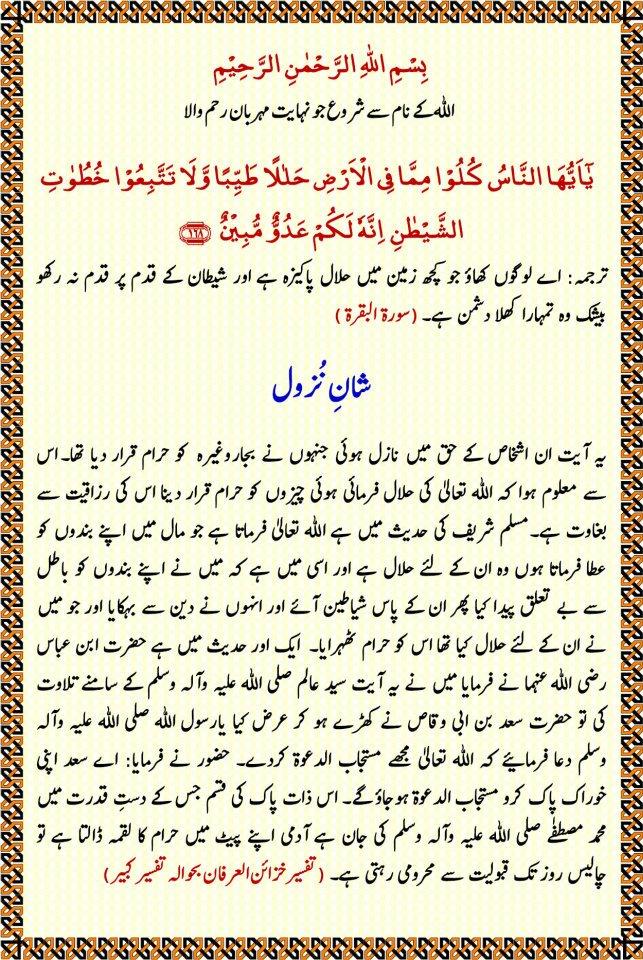 بِسْمِ اللهِ الرَّحْمٰنِ الرَّحِيْمِ
اللہ کے نام سے شروع جو نہایت مہربان رحم والا
يٰٓاَيُّهَا النَّاسُ كُلُوْا مِمَّا فِي الْاَرْضِ حَلٰلًا طَيِّبًا وَّلَا تَتَّبِعُوْا خُطُوٰتِ
الشَّيْطٰنِ اِنَّهٗ لَكُمْ عَدُوٌّ مُّبِيْنٌ ﴿۱۶۸﴾
ترجمہ: اے لوگوں کھاؤ جو کچھ زمین میں حلال پاکیزہ ہے اور شیطان کے قدم پر قدم نہ رکھو
بیشک وہ تمہارا کھلا دشمن ہے۔ (سورۃ البقرۃ)
شانِ نُزول
یہ آیت ان اشخاص کے حق میں نازل ہوئی جنہوں نے بجار وغیرہ کو حرام قرار دیا تھا۔ اس
سے معلوم ہوا کہ اللہ تعالیٰ کی حلال فرمائی ہوئی چیزوں کو حرام قرار دینا اس کی رزاقیت سے
بغاوت ہے۔ مسلم شریف کی حدیث میں ہے اللہ تعالیٰ فرماتا ہے جو مال میں اپنے بندوں کو
عطا فرماتا ہوں وہ ان کے لئے حلال ہے اور اسی میں ہے کہ میں نے اپنے بندوں کو باطل
سے بے تعلق پیدا کیا پھر ان کے پاس شیاطین آئے اور انہوں نے دین سے بہکایا اور جو میں
نے ان کے لئے حلال کیا تھا اس کو حرام ٹھہرایا۔ ایک اور حدیث میں ہے حضرت ابن عباس
رضی اللہ عنہما نے فرمایا میں نے یہ آیت سید عالم صلی اللہ علیہ وآلہ وسلم کے سامنے تلاوت
کی تو حضرت سعد بن ابی وقاص نے کھڑے ہو کر عرض کیا یا رسول اللہ صلی اللہ علیہ وآلہ
وسلم دعا فرمایئے کہ اللہ تعالیٰ مجھے مستجاب الدعوۃ کردے۔ حضور نے فرمایا: اے سعد اپنی
خوراک پاک کرو مستجاب الدعوۃ ہوجاؤگے۔ اس ذات پاک کی قسم جس کے دستِ قدرت میں
محمد مصطفٰے صلی اللہ علیہ وآلہ وسلم کی جان ہے آدمی اپنے پیٹ میں حرام کا لقمہ ڈالتا ہے تو
چالیس روز تک قبولیت سے محرومی رہتی ہے۔ (تفسیر خزائن العرفان بحوالہ تفسیر کبیر)